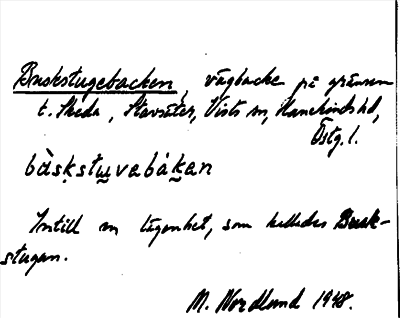 Buskstugebacken, vägbacke på gränsen
t. Skeda, Stavsäter, Vists sn, Hanekinds hd,
Östg. l.
bàskstu̲vebák̲an
Intill en lägenhet, som kallades Busk-
stugan.
M. Nordlund 1948.